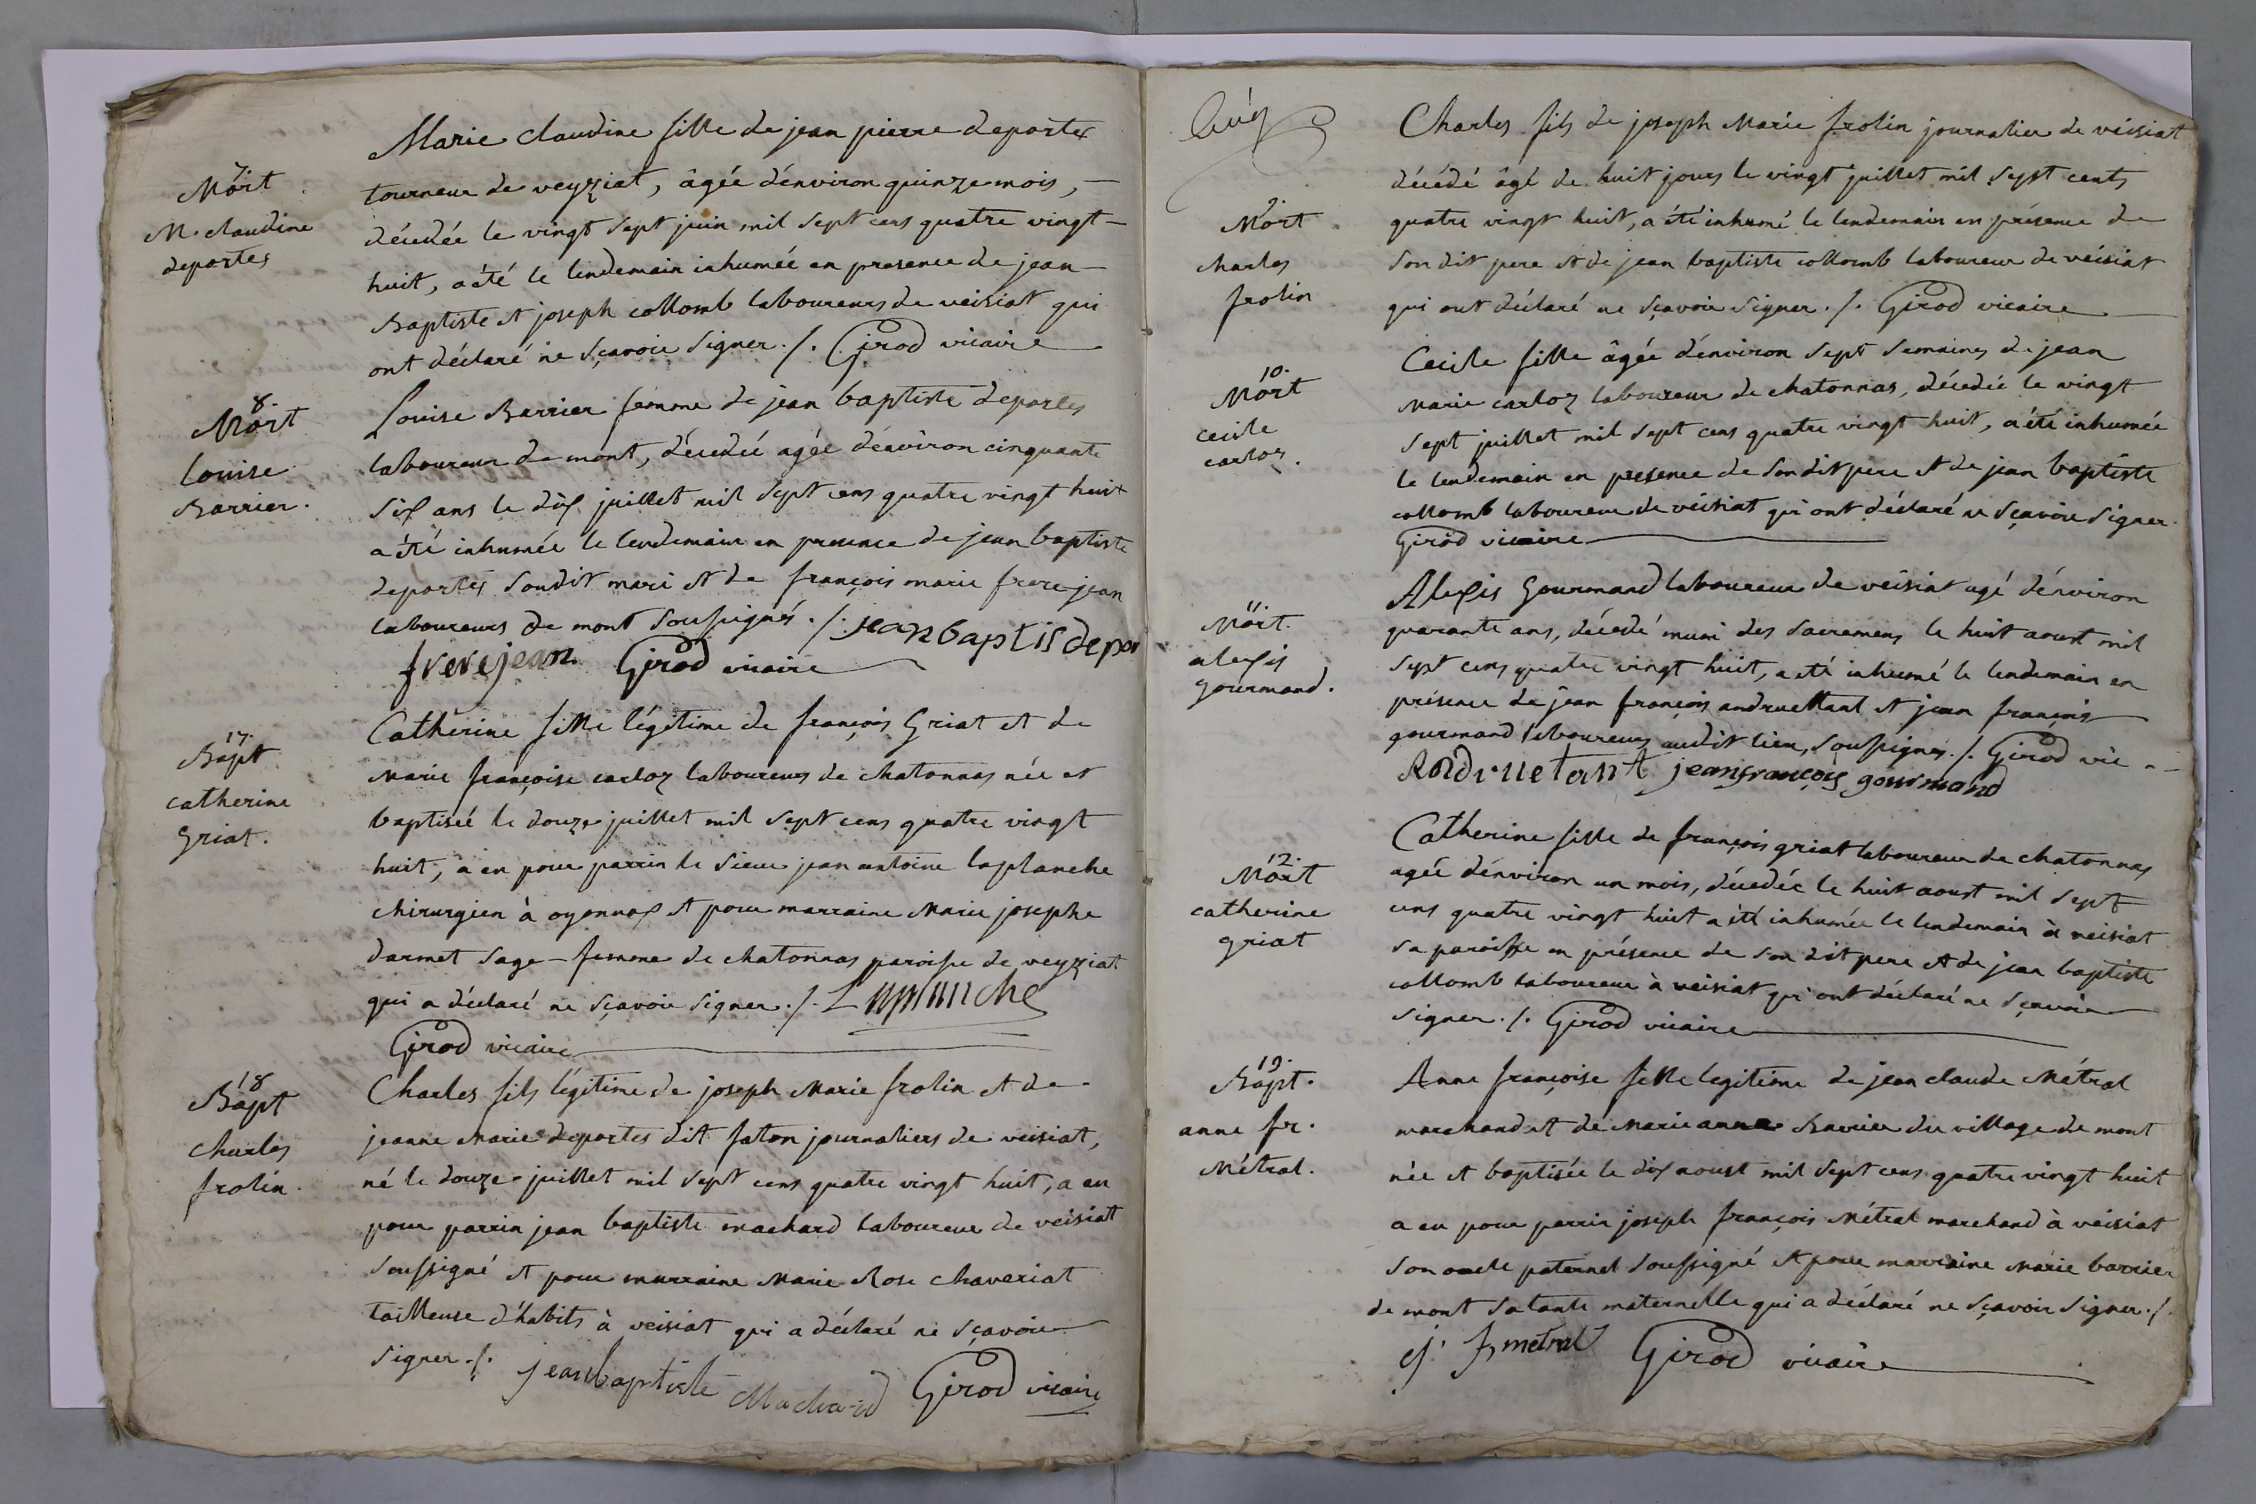 7
Mort
M. claudine
deportes
Marie claudine fille de jean pierre deportes
tourneur de veyziat, âgée d'environ quinze mois,
décedée le vingt sept juin mil sept cens quatre vingt
huit, a été le lendemain inhumée en presence de jean
Baptiste et joseph collomb laboureurs de veisiat qui
ont déclaré ne sçavoir signer ./. Girod vicaire
8
Mort
louise
Barrier.
Louise Barrier femme de jean baptiste deportes
laboureur de mont, décedée agée d'environ cinquante
six ans le dix juillet mil sept cens quatre vingt huit
a été inhumée le lendemain en presence de jean baptiste
deportes sondit mari et de françois marie frere jean
laboureurs de mont soussignés ./. jean baptis depor
frerejean Girod vicaire
17.
Bapt
catherine
Griat.
Catherine fille légitime de françois Griat et de
Marie françoise carloz laboureurs de chatonnas née et
baptisée le douze juillet mil sept cens quatre vingt
huit, a eu pour parrin le sieur jean antoine laplanche
chirurgien à oyonnax et pour marraine Marie josephe
darmet sage-femme de chatonnas paroisse de veyziat
qui a déclaré ne sçavoir signer ./. Laplanche
Girod vicaire
18
Bapt
Charles
frolin.
Charles fils légitime de joseph Marie frolin et de
jeanne Marie deportes dit faton journaliers de veisiat,
né le douze juillet mil sept cens quatre vingt huit, a eu
pour parrin jean baptiste machard laboureur de veisiat
soussigné et pour marraine Marie Rose chaveriat
tailleuse d'habits à veisiat qui a déclaré ne sçavoir
signer ./. jean baptiste Machard Girod vicaire
9
Mort
charles
frolin
Charles fils de joseph Marie frolin journalier de veisiat
décédé âgé de huit jours le vingt juillet mil sept cents
quatre vingt huit, a été inhumé le lendemain en présence de
son dit pere et de jean baptiste collomb laboureur de veisiat
qui ont déclaré ne sçavoir signer ./. Girod vicaire
10.
Mort
cecile
carloz.
Cecile fille âgée d'environ sept semaines de jean
Marie carloz laboureur de chatonnas, décedée le vingt
sept juillet mil sept cens quatre vingt huit, a été inhumée
le lendemain en presence de son dit pere et de jean baptiste
collomb laboureur de veisiat qui ont déclaré ne sçavoir signer.
Girod vicaire
11
Mort.
alexis
gourmand.
Alexis Gourmand laboureur de veisiat agé d'environ
quarante ans, décedé muni des sacremens le huit aoust mil
sept cens quatre vingt huit, a été inhumé le lendemain en
présence de jean françois andruettant et jean françois
gourmand laboureurs audit lieu, soussignés ./. Girod vic
Andruetant jean françois gourmand
12
Mort
catherine
griat
Catherine fille de françois griat laboureur de chatonnas
agée d'environ un mois, décedée le huit aoust mil sept
cens quatre vingt huit a été inhumée le lendemain à veisiat
sa paroisse en présence de son dit pere et de jean baptiste
collomb laboureur à veisiat qui ont déclaré ne sçavoir
signer ./. Girod vicaire
19.
Bapt.
anne fr.
Métral.
Anne françoise fille légitime de jean claude Métral
marchand et de Marie anne Barrier du village de mont
née et baptisée le dix aoust mil sept cens quatre vingt huit
a eu pour parrin joseph françois Métral marchand à veisiat
son oncle paternel soussigné et pour marraine Marie barrier
de mont sa tante maternelle qui a déclaré ne sçavoir signer ./.
j. f. metral Girod vicaire